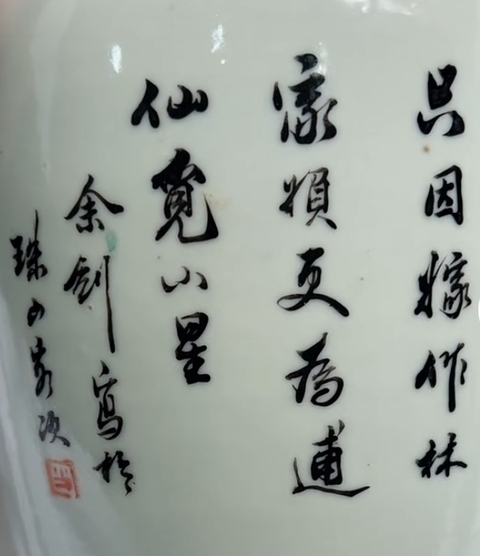 只因嫁作林
家媍更為逋
仙覓小星
余釗寫於
珠山客次